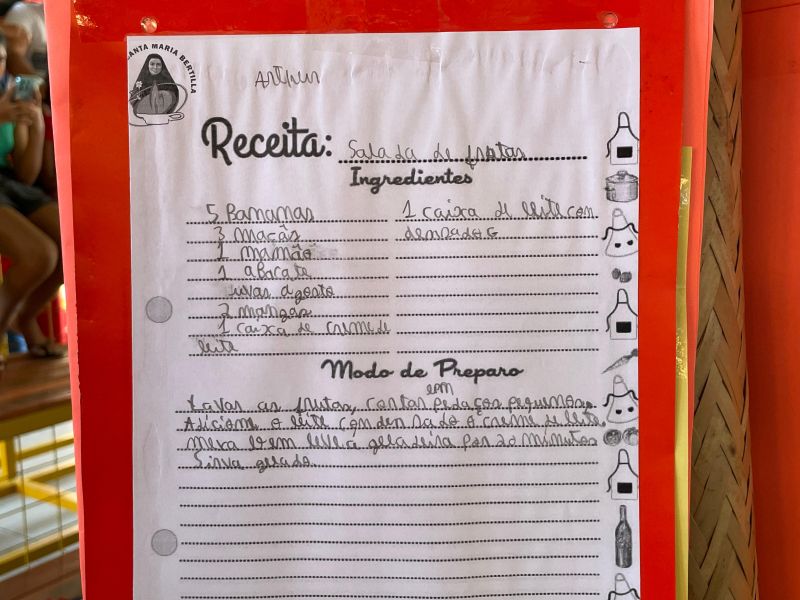 SANTA MARIA BERTILLA
Arthur
Receita: Salada de frutas
Ingredientes
5 Bananas
3 maçãs
1 mamão
1 abacate
uvas a gosto
2 mangas
1 caixa de creme de
leite
1 caixa de leite con
densado
Modo de Preparo
Lavar as frutas, cortar em pedaços pequenos.
Adicione o leite condensado o creme de leite
mexa bem leve á geladeira por 20 minutos
Sirva gelado